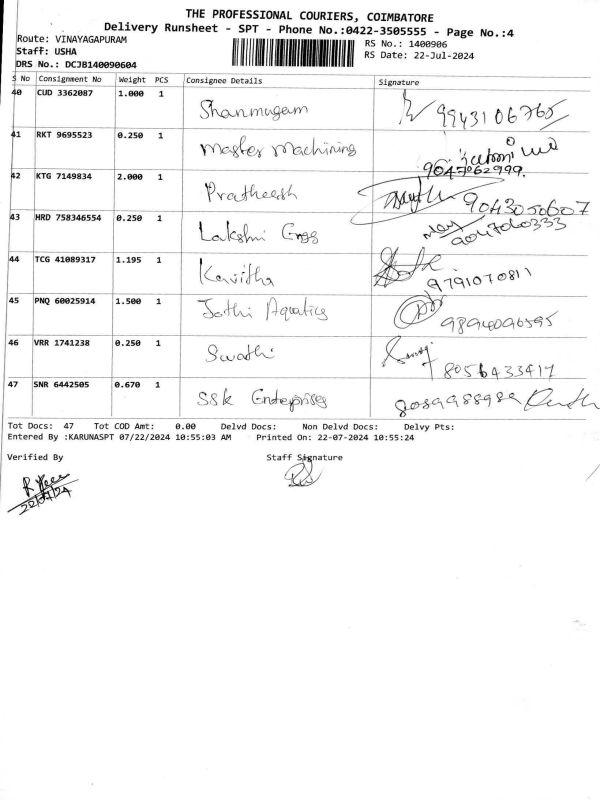 THE PROFESSIONAL COURIERS, COIMBATORE
Delivery Runsheet - SPT - Phone No.:0422-3505555 - Page No.:4
Route: VINAYAGAPURAM
RS No.: 1400906
Staff: USHA
RS Date: 22-Jul-2024
DRS No.: DCJB140090604
S No Consignment No Weight PCS Consignee Details Signature
40 CUD 3362087 1.000 1 Shanmugam 9943106765
41 RKT 9695523 0.250 1 Master Machining
9047062999.
42 KTG 7149834 2.000 1 Pratheesh 9043050607
43 HRD 758346554 0.250 1 Lakshmi Engg
9047060333
44 TCG 41089317 1.195 1 Kavitha 9791070811
45 PNQ 60025914 1.500 1 Jothi Aquatics 9894096595
46 VRR 1741238 0.250 1 Swathi
8056433417
47 SNR 6442505 0.670 1 SSK Enterprises
Tot Docs: 47 Tot COD Amt: 0.00 Delvd Docs: Non Delvd Docs: Delvy Pts:
Entered By :KARUNASPT 07/22/2024 10:55:03 AM Printed On: 22-07-2024 10:55:24
Verified By Staff Signature
22/07/24